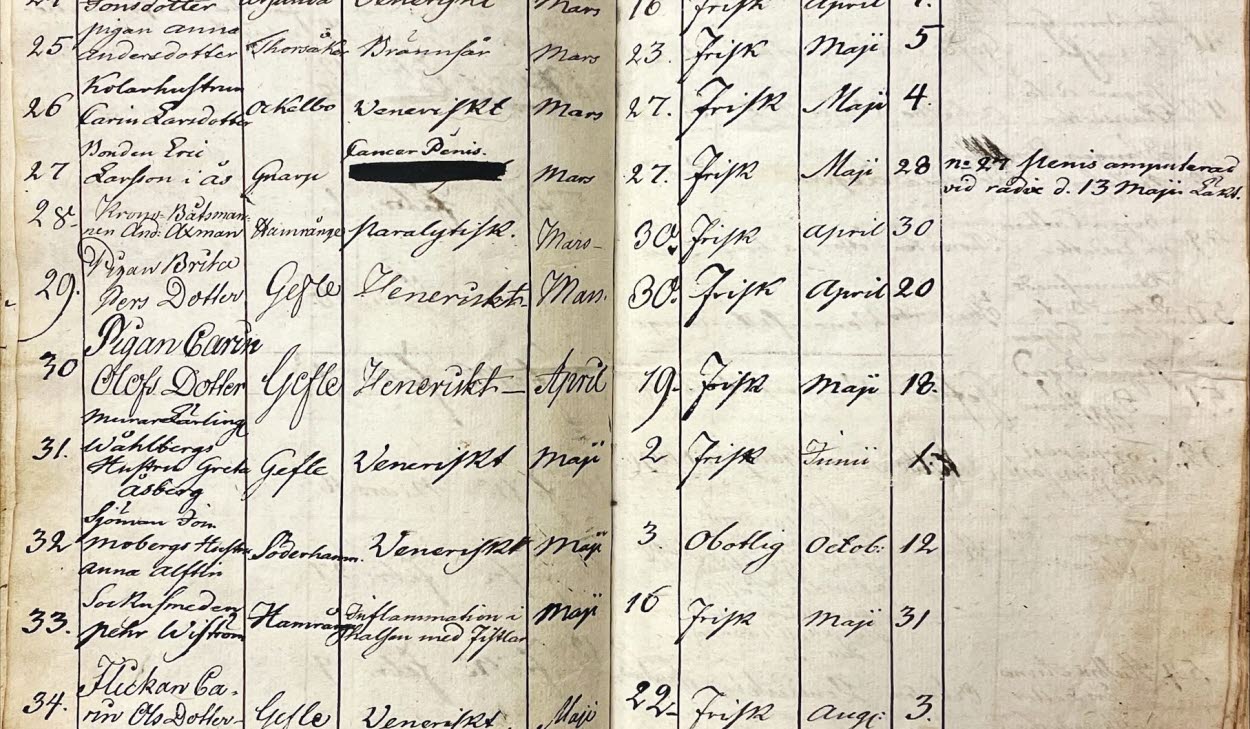 Jonsdotter Veneriskt Mars 16 Frisk April 1.
25 pigan anna Andersdotter Thorsåker Brännsår Mars 23. Frisk Maji 5
26 Kolarhustrun Carin Larsdotter Ockelbo Veneriskt Mars 27. Frisk Maji 4.
27 Bonden Eric Larsson i ås Gnarp Cancer Penis. Mars 27. Frisk Maji 28 no 27 Penis amputerad
vid radix d. 13 Maji. Läkt.
28. Krono-Båtsman-
nen And: Axman Hamrånge Paralytisk. Mars- 30. Frisk April 30
29. Pigan Brita
Pers Dotter Gefle Veneriskt- Mars. 30. Frisk April 20
30 Pigan Carin
Olofs Dotter Gefle Veneriskt- April 19- Frisk Maji 18.
31. Murare Lärling
Wåhlbergs
Hustru Greta Gefle Veneriskt Maji 2 Frisk Junii
Åsberg
32 Sjöman Joh
Mobergs Hustru Söderhamn. Veneriskt Maji 3. Obotlig Octob: 12
anna alftin
33. Sockusmeden
pehr Wiström Hamrånge Inflammation i
Halsen med Fistlar Maji 16 Frisk Maji 31
34. Flickan Ca-
rin Ols Dotter- Gefle Veneriskt Maji 22- Frisk Aug: 3.